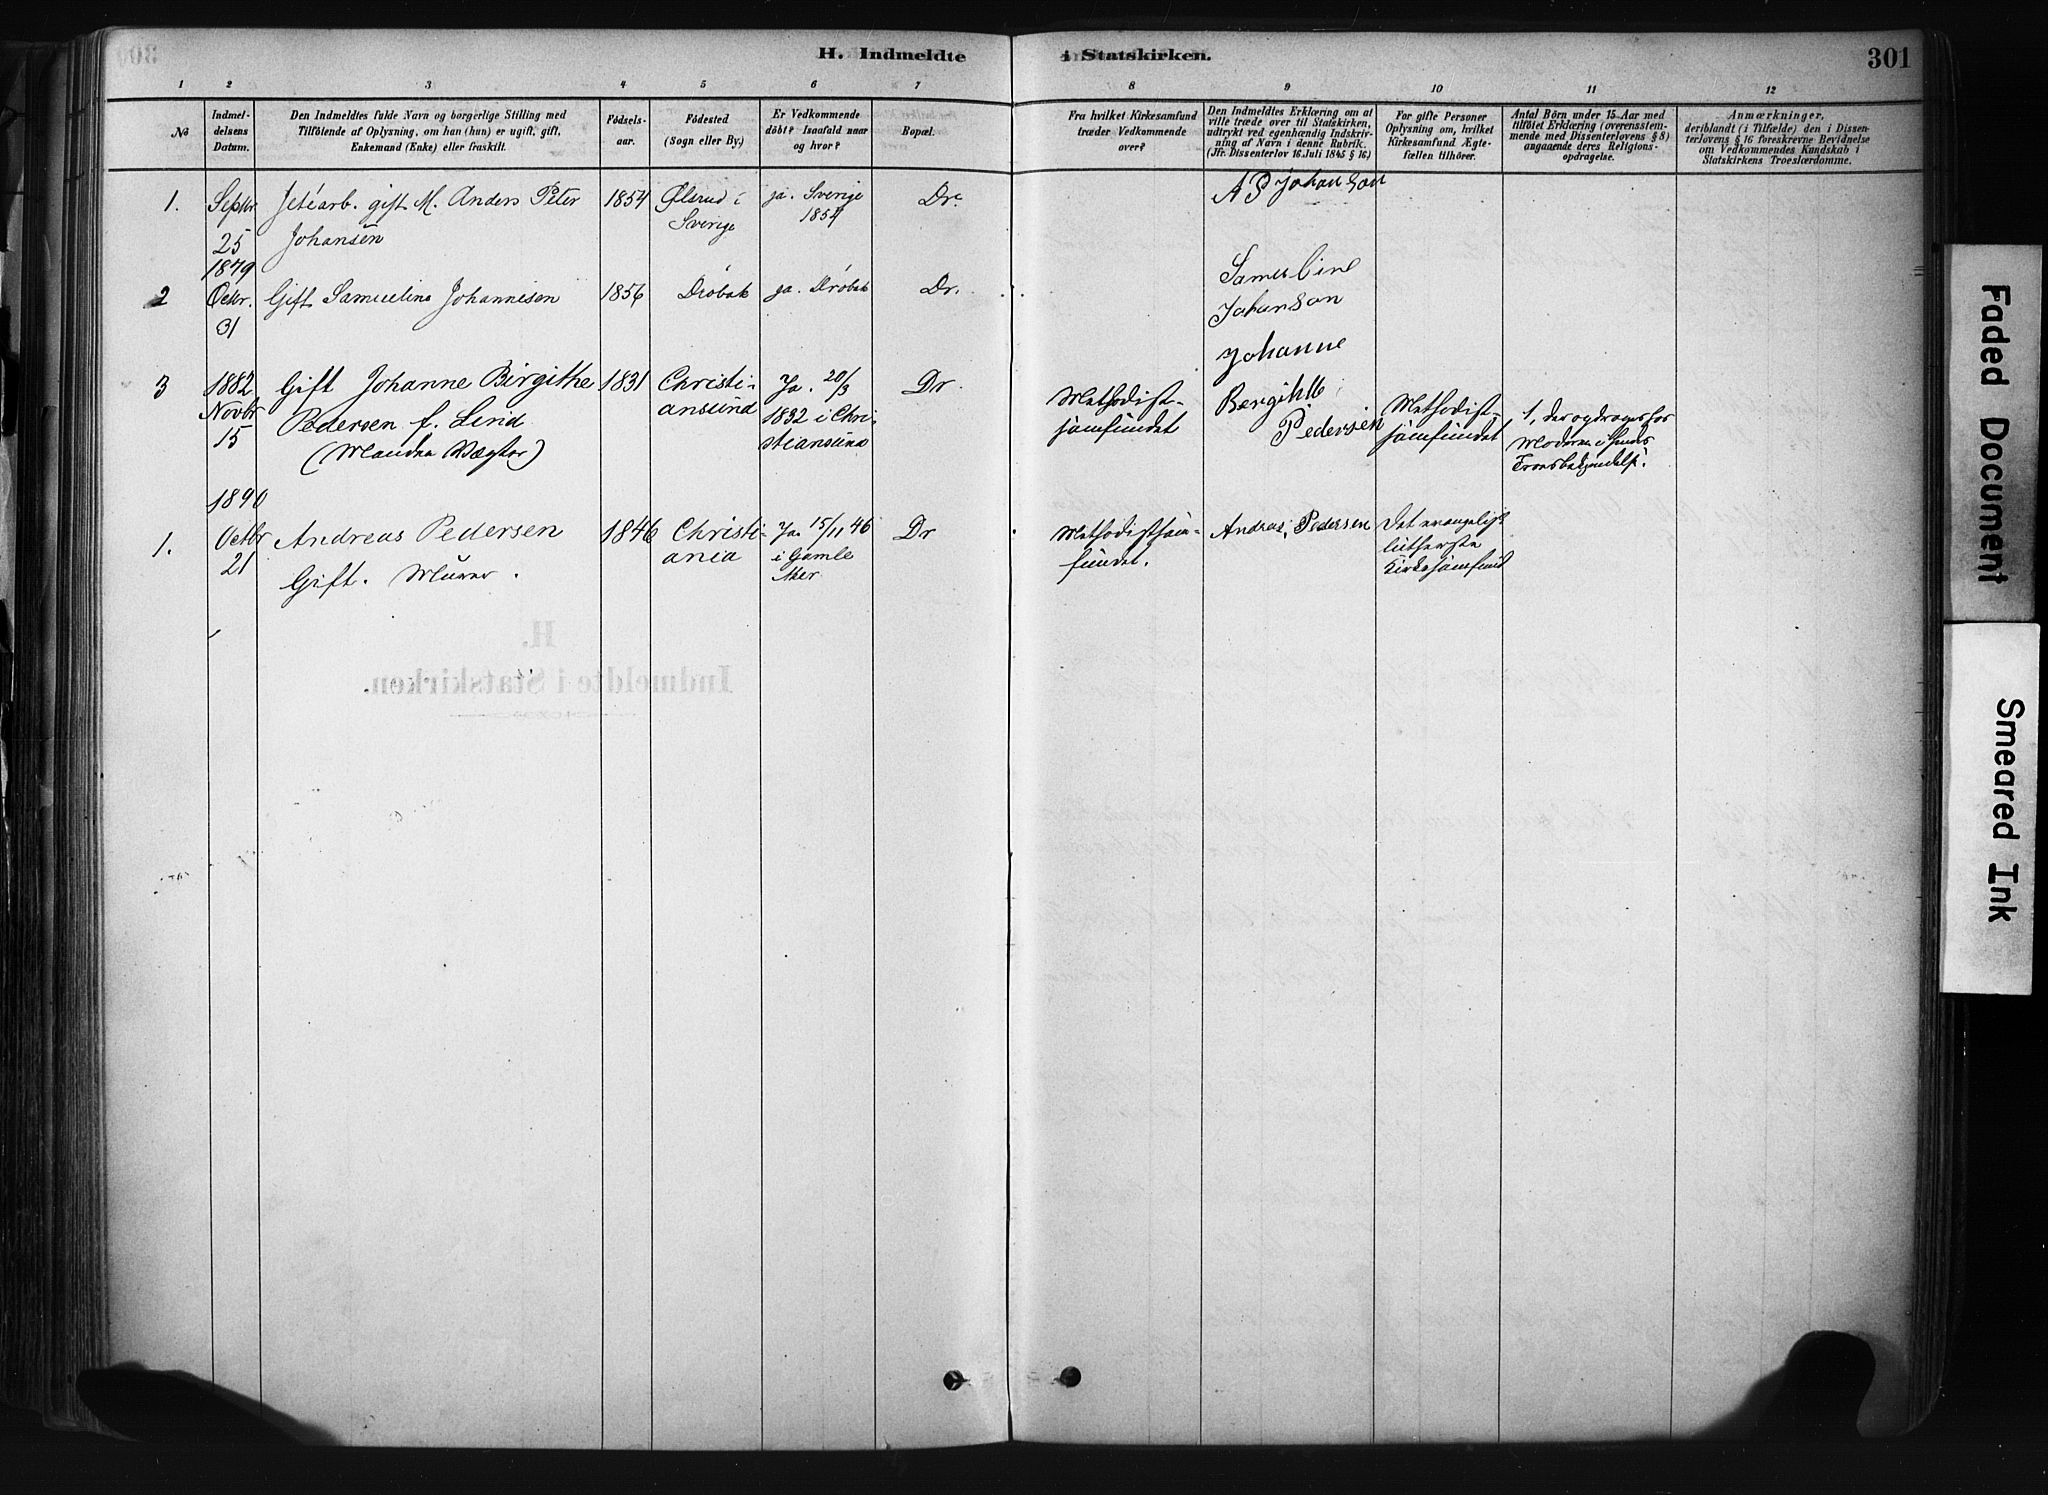 H. Indmeldte i Statskirken. 301
1 2 3 4 5 6 7 8 9 10 11 12
No
Indmel-
delsens
Datum.
Den Indmeldtes fulde Navn og borgerlige Stilling med
Tilföiende af Oplysning, om han (hun) er ugift, gift,
Enkemand (Enke) eller fraskilt.
Födsels-
aar.
Födested
(Sogn eller By.)
Er Vedkommende
döbt? Isaafald naar
og hvor?
Bopæl.
Fra hvilket Kirkesamfund
træder Vedkommende
over?
Den Indmeldtes Erklæring om at
ville træde over til Statskirken,
udtrykt ved egenhændig Indskriv-
ning af Navn i denne Rubrik.
(Jfr. Dissenterlov 16 Juli 1845 § 16)
For gifte Personer
Oplysning om, hvilket
Kirkesamfund Ægte-
fællen tilhörer.
Antal Börn under 15 Aar med
tilföiet Erklæring (overensstem-
mende med Dissenterlovens § 8)
angaaende deres Religions-
opdragelse.
Anmærkninger,
deriblandt (i Tilfælde) den i Dissen-
terlovens § 16 foreskrevne Bevidnelse
om Vedkommendes Kundskab i
Statskirkens Troeslærdomme.
1.
Septbr
25
1879
gift M. Anders Peter
Johansen
1854
Ølsrud i
Sverige
ja. Sverige
1854
Dr.
A P Johanson
2
Octbr.
31
Gift Samueline Johannesen
1856
Drøbak
ja. Drøbak
Dr.
Samueline
Johanson
3
1882
Novbr
15
Gift Johanne Birgithe
Pedersen f. Lind
(Manden Vægter)
1831
Christi-
ansund
Ja. 20/3
1832 i Chri-
stiansund
Dr.
Methodist-
samfundet
Johanne
Bergithe
Pedersen
Methodist-
samfundet
1, der opdrages for
Moderen i hendes
Troesbekjendelse.
1890
1.
Octbr
21
Andreas Pedersen
Gift. Murer.
1846
Christi-
ania
Ja 15/11 46
i Gamle
Aker
Dr
Methodistsam-
fundet.
Andreas Pedersen
Det evangelisk
lutherske
Kirkesamfund
H.
Indmeldte i Statskirken.
Faded Document
Smeared Ink